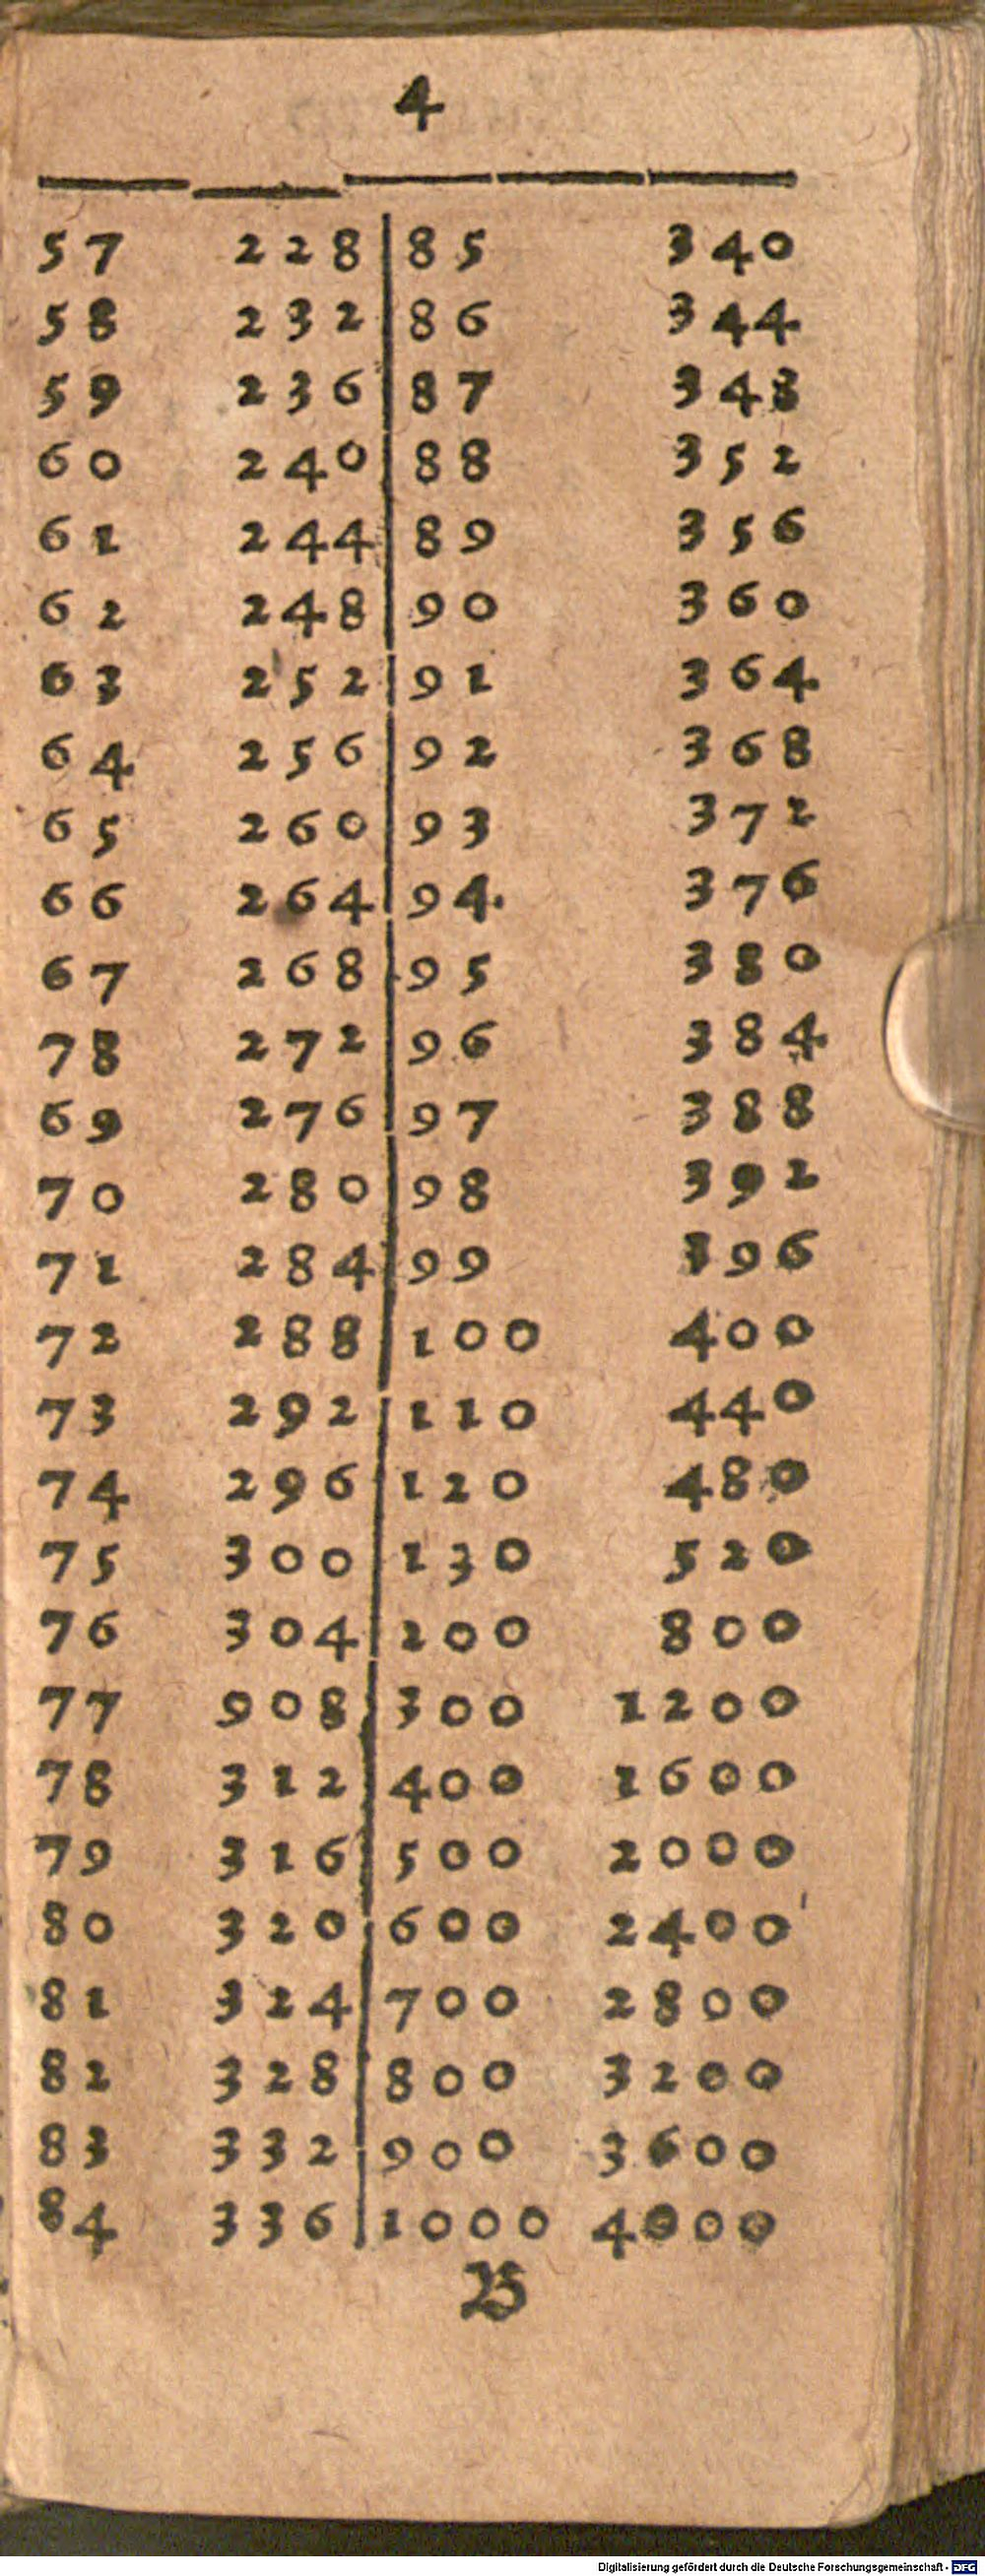 4
57 228 85 340
58 232 86 344
59 236 87 348
60 240 88 352
61 244 89 356
62 248 90 360
63 252 91 364
64 256 92 368
65 260 93 372
66 264 94 376
67 268 95 380
78 272 96 384
69 276 97 388
70 280 98 392
71 284 99 396
72 288 100 400
73 292 110 440
74 296 120 480
75 300 130 520
76 304 200 800
77 908 300 1200
78 312 400 1600
79 316 500 2000
80 320 600 2400
81 324 700 2800
82 328 800 3200
83 332 900 3600
84 336 1000 4000
B
Digitalisierung gefördert durch die Deutsche Forschungsgemeinschaft - DFG